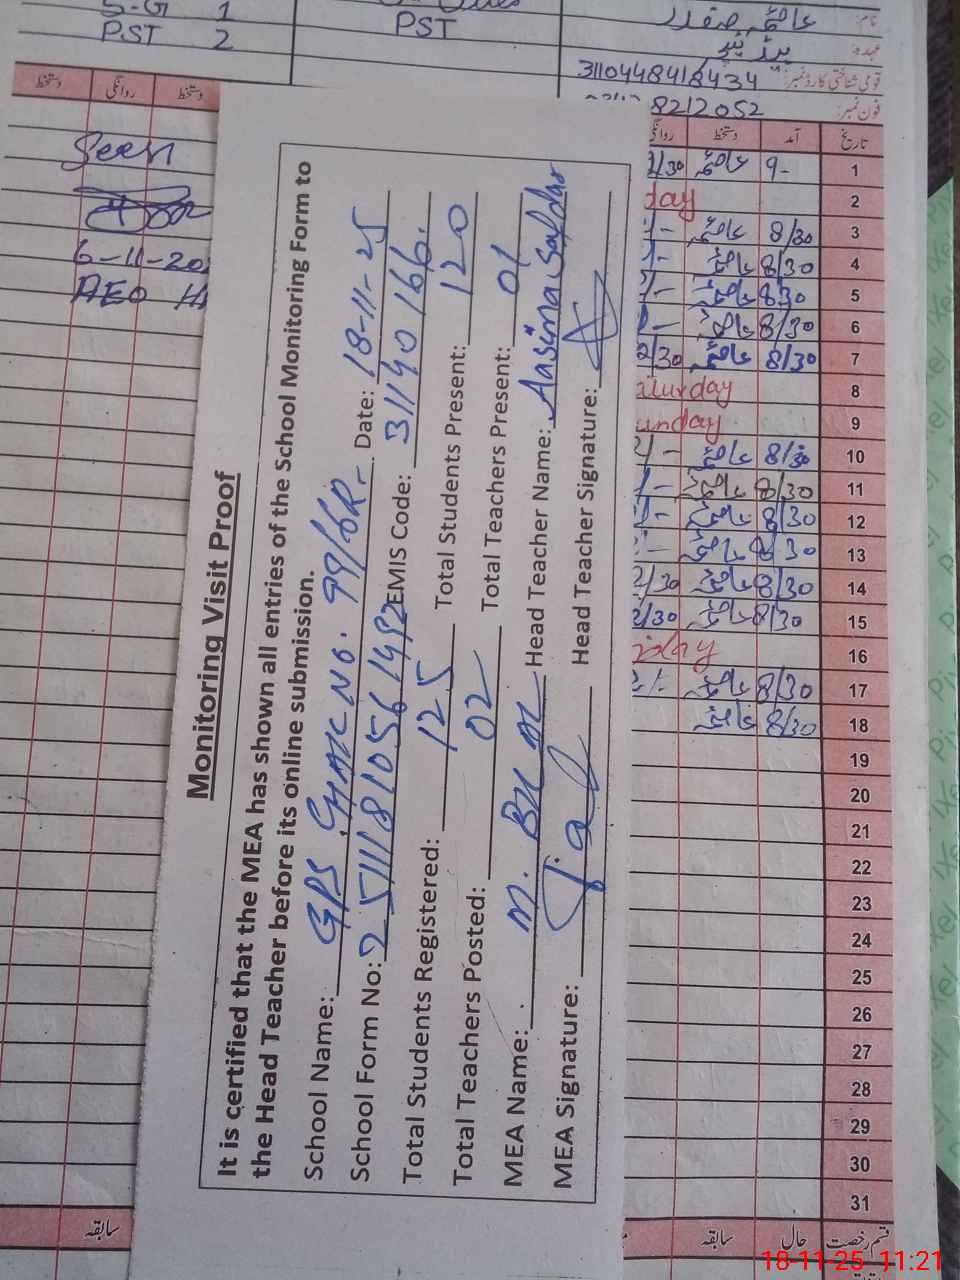 S-G 1
PST 2
PST
نام:
عہدہ:
قومی شناختی کارڈ نمبر: 3110448418434
فون نمبر: 8212052
دستخط روانگی دستخط
روانگی دستخط آمد تاریخ
Seen
6-11-20
AEO
Monitoring Visit Proof
It is certified that the MEA has shown all entries of the School Monitoring Form to
the Head Teacher before its online submission.
School Name: GPS CHAK No. 99/6R Date: 18-11-25
School Form No: 25111810561492 EMIS Code: 31140166
Total Students Registered: 125 Total Students Present: 120
Total Teachers Posted: 02 Total Teachers Present: 01
MEA Name: M. Head Teacher Name: Aasima Safdar
MEA Signature: Head Teacher Signature:
9- 1
day 2
8/30 3
8/30 4
830 5
8/30 6
2/30 8/30 7
aturday 8
unday 9
8/30 10
8/30 11
8/30 12
8/30 13
2/30 8/30 14
2/30 8/30 15
16
8/30 17
8/30 18
19
20
21
22
23
24
25
26
27
28
29
30
31
سابقہ
سابقہ حال قسم رخصت
18-11-25 11:21